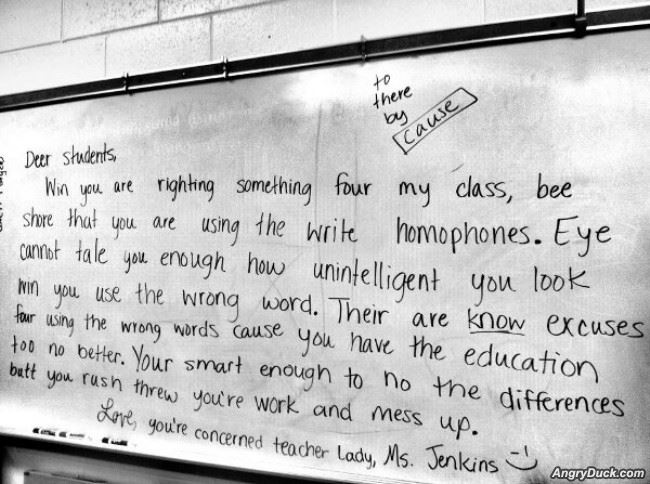 to
there
by
cause
Deer students,
Win you are righting something four my class, bee
shore that you are using the write homophones. Eye
cannot tale you enough how unintelligent you look
win you use the wrong word. Their are know excuses
four using the wrong words cause you have the education
too no better. Your smart enough to no the differences
butt you rush threw you're work and mess up.
Love, you're concerned teacher Lady, Ms. Jenkins
AngryDuck.com